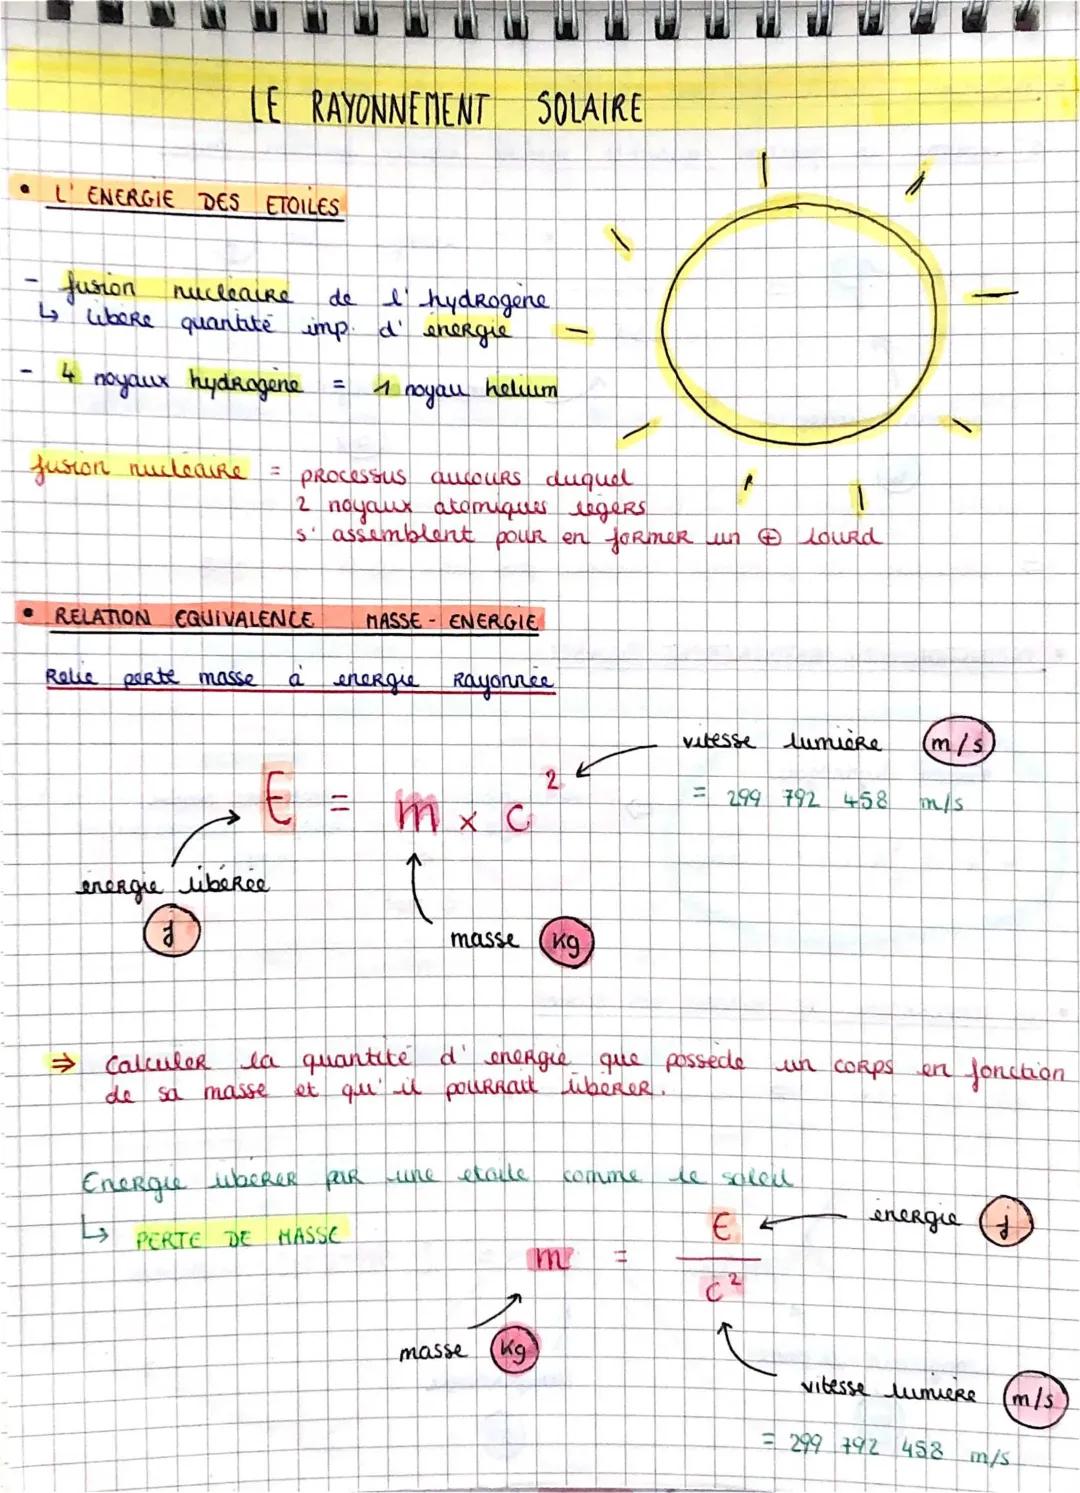 LE RAYONNEMENT SOLAIRE
• L'ENERGIE DES ETOILES
- fusion nucléaire de l'hydrogène
↳ libère quantité imp. d'énergie
- 4 noyaux hydrogène = 1 noyau helium
fusion nucléaire = processus aucours duquel
2 noyaux atomiques légers
s'assemblent pour en former un ⊕ lourd
• RELATION EQUIVALENCE MASSE - ENERGIE
Relie perte masse à énergie rayonnée
vitesse lumière m/s
= 299 792 458 m/s
E = m x c²
énergie libérée
j
masse kg
⇒ Calculer la quantité d'énergie que possède un corps en fonction
de sa masse et qu'il pourrait libérer.
Energie libérer par une étoile comme le soleil
↳ PERTE DE MASSE
m = E / c²
énergie j
masse kg
vitesse lumière m/s
= 299 792 458 m/s